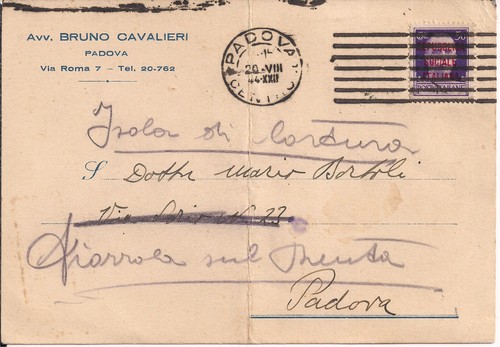 Avv. BRUNO CAVALIERI
PADOVA
Via Roma 7 - Tel. 20-762
PADOVA
20·VIII
44·XXII
CENTRO
REPUBBLICA
SOCIALE
ITALIANA
Isola di
S Dott. Mario Bortoli
Via N. 23
sul Brenta
Padova